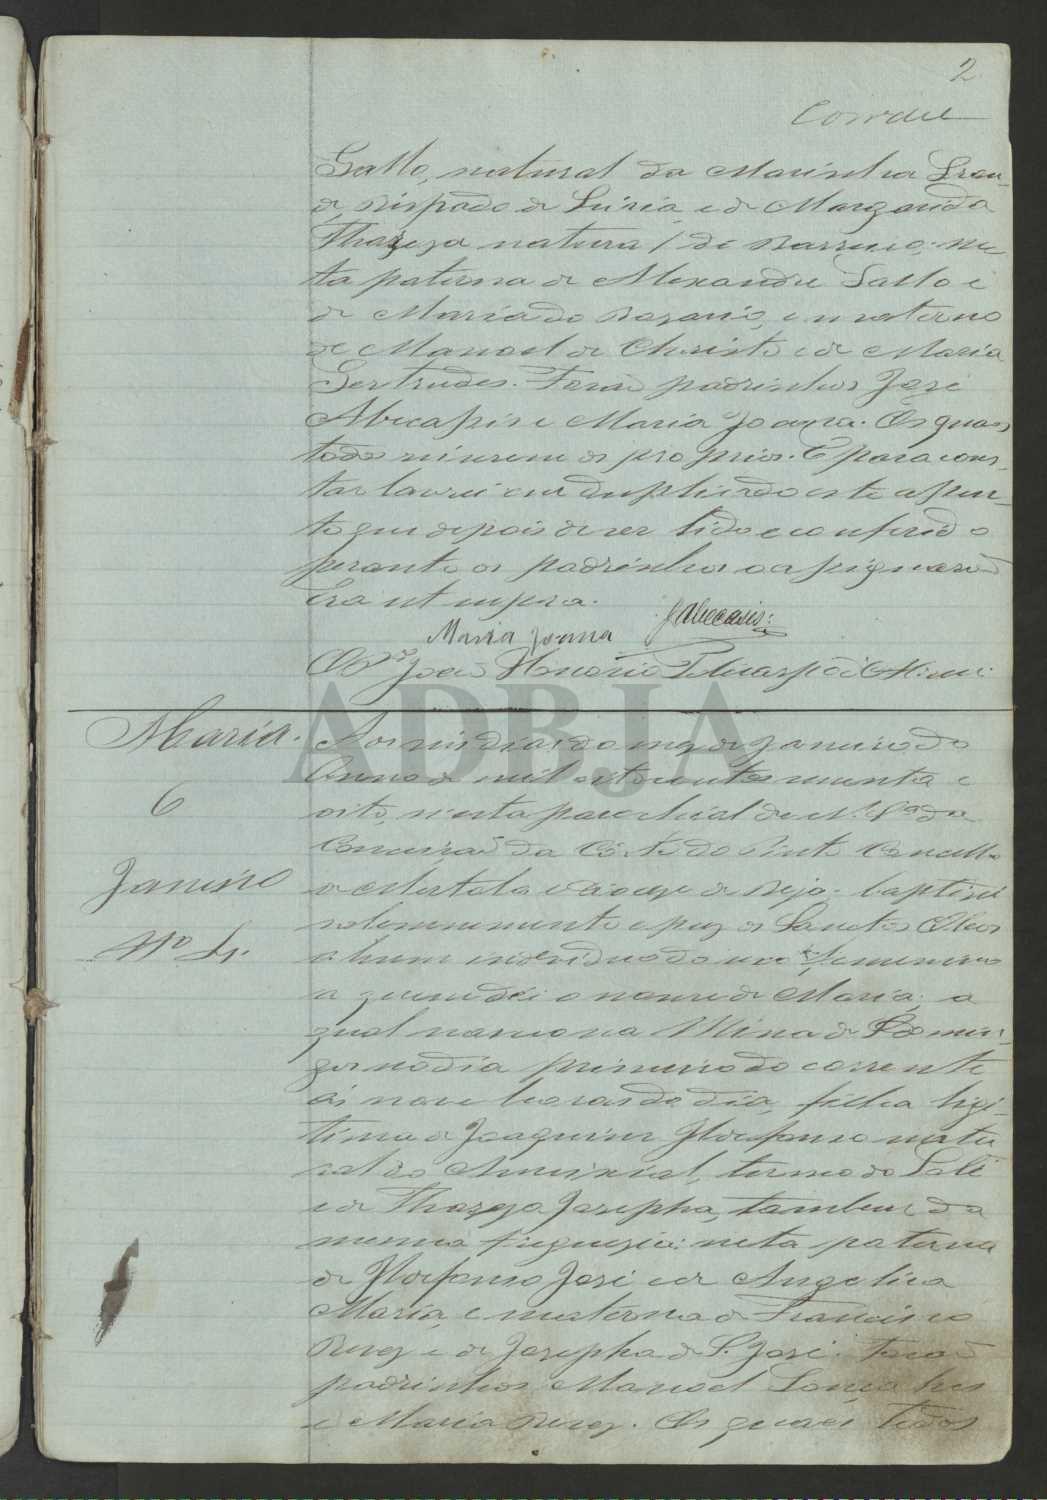 2
Gallo, natural da Marinha Gran-
de, Bispado de Leiria, e de Margarida
Thareza natural de Barreiro: ne-
ta paterna de Alexandre Gallo e
de Maria do Rozario, e materno
de Manoel de Christo e de Maria
Gertrudes. Forão padrinhos José
Abecassis e Maria Joanna. Os quaes
todos sei serem os proprios. E para cons-
tar lavrei em duplicado este assen-
to que depois de ser lido e conferido
perante os padrinhos o assignarão
Era ut supra.
J Abecassis:
Maria Joanna
O Pr. João Honorio
ADBJA
Maria.
6
Janeiro
Nº 4.
Aos seis dias do mez de Janeiro do
Anno de mil oitocentos e
oito, n'esta parochial de N. Sª da
Conceição da Côrte do Pinto Concelho
de Mertola e Diocese de Beja baptizei
solemnemente e puz os Sanctos Oleos
a hum individuo do sexo femenino
a quem dei o nome de Maria, a
qual nasceo na Mina de S. Domin-
gos no dia primeiro do corrente
ás nove horas do dia, filha legi-
tima de Joaquim Ildefonso natu
ral do Ameixial, termo de Loulé
e de Thareza Josepha, tambem da
mesma freguezia: neta paterna
de Ildefonso José e de Angelica
Maria, e materna de Francisco
Perez e de Josepha de S. José. Forão
padrinhos Manoel Gonçalves
e Maria Perez. Os quaes todos